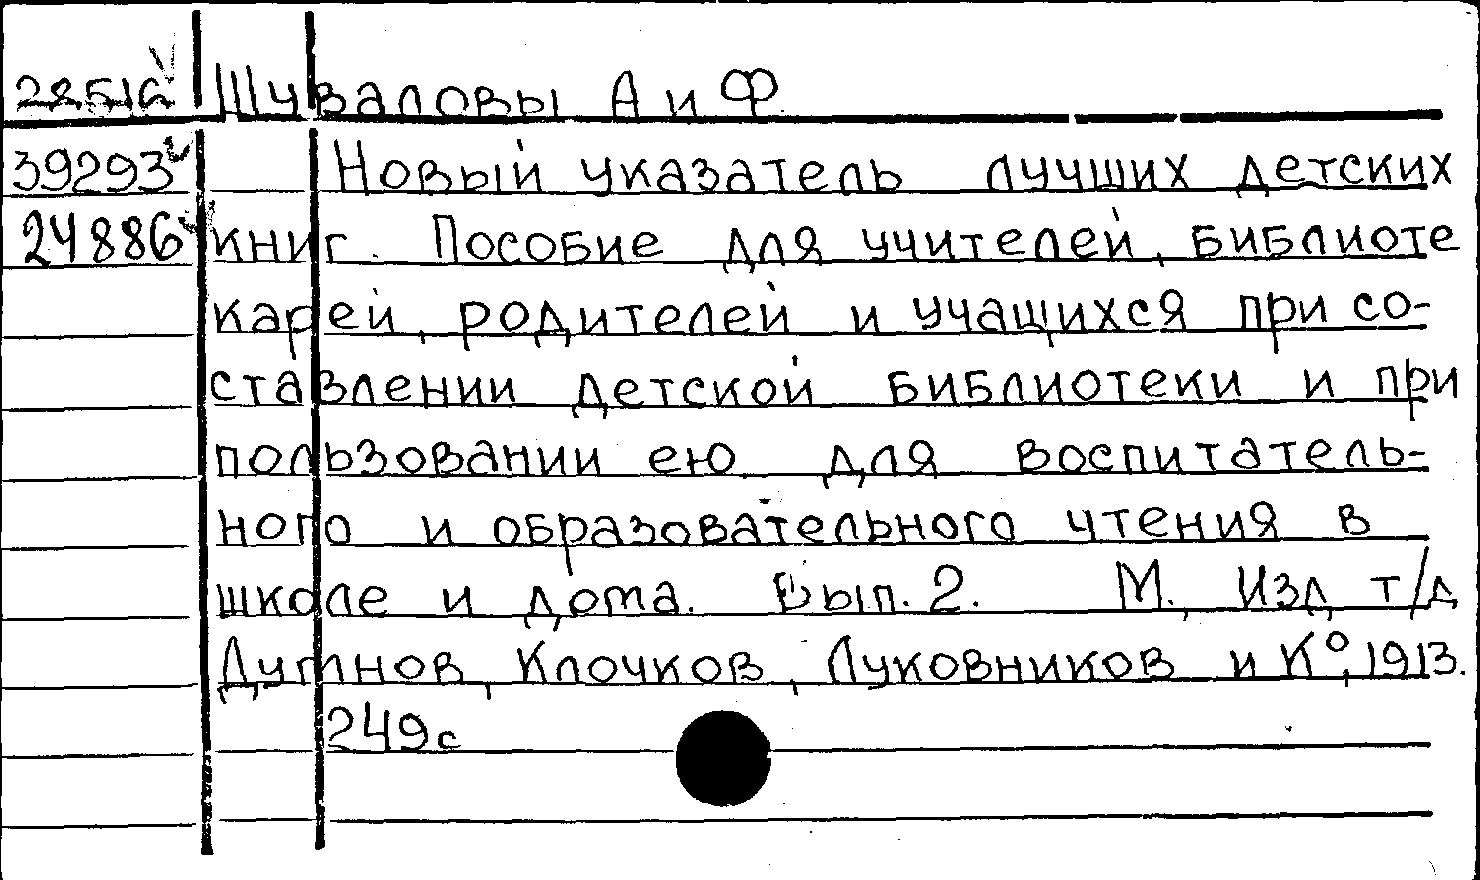 28516 Шуваловы А и Ф.
39293 Новый указатель лучших детских
24886 книг. Пособие для учителей, библиоте
карей, родителей и учащихся при со-
ставлении детской библиотеки и при
пользовании ею для воспитатель-
ного и образовательного чтения в
школе и дома. Вып. 2. М., Изд. т/д
Думнов, Клочков, Луковников и К°, 1913.
249с